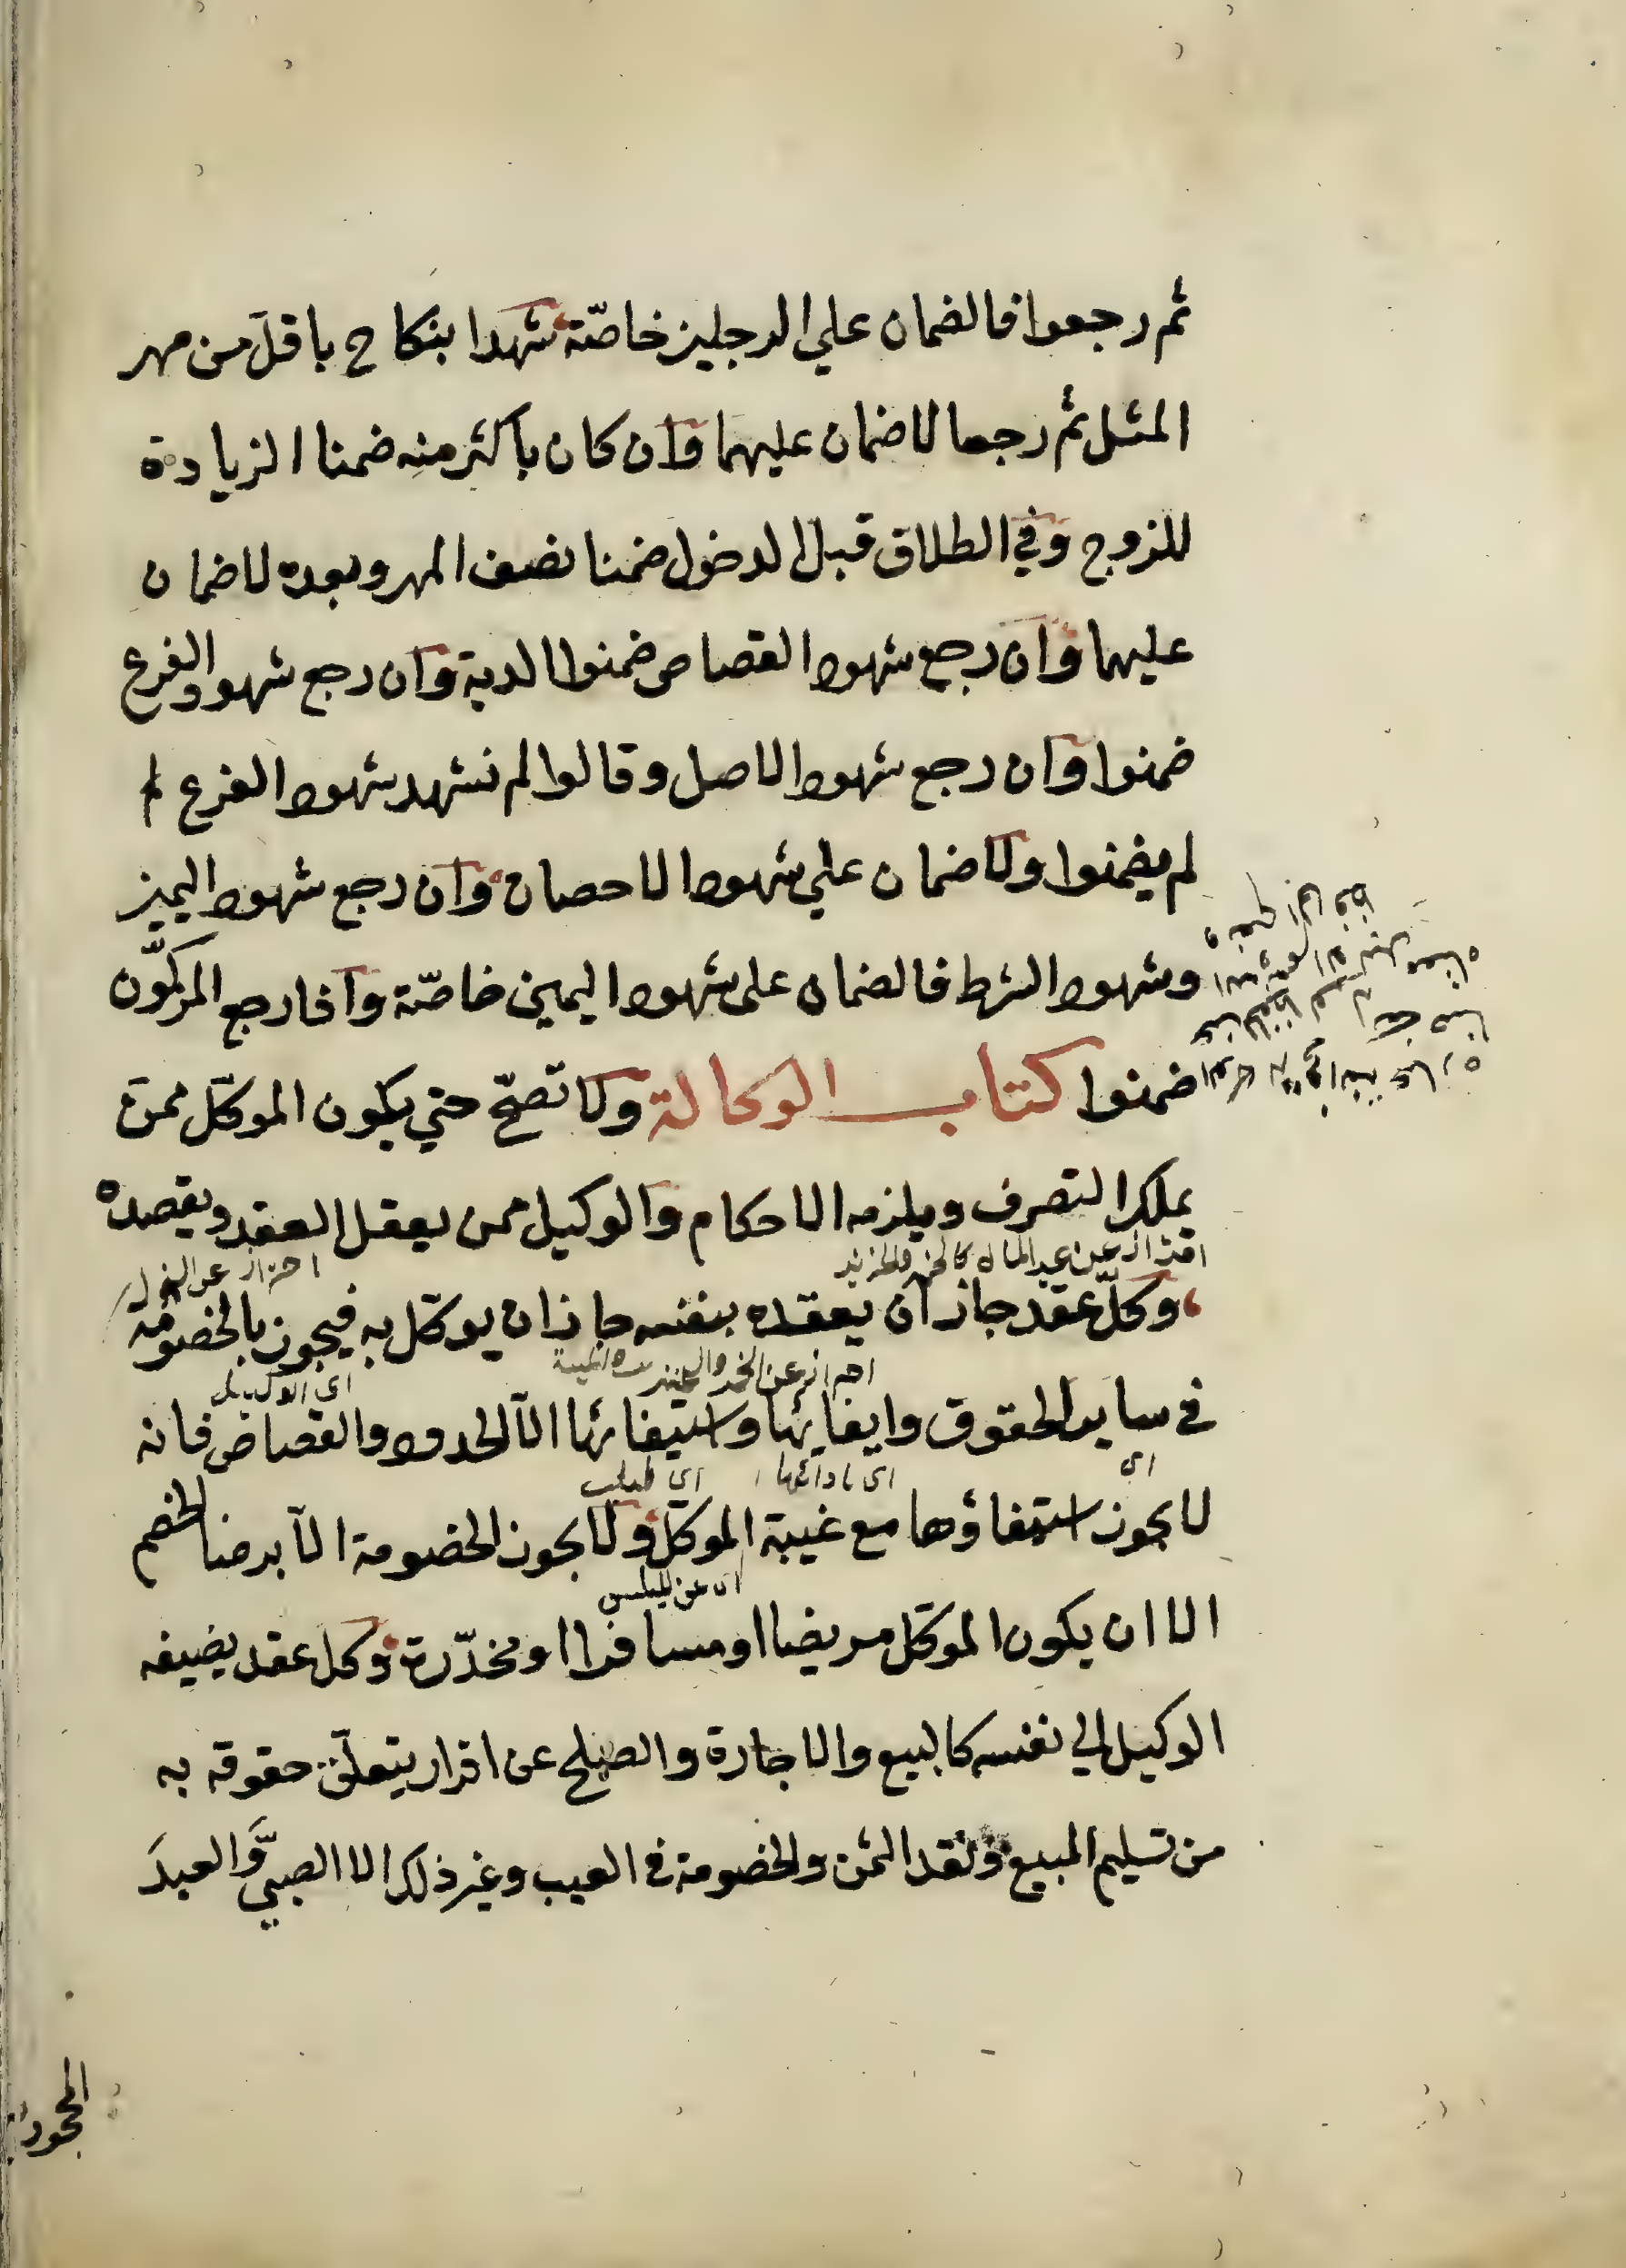 ثم رجعوا فالضمان علي الرجلين خاصّة شهدا بنكاح باقل من مهر
المثل ثم رجعا لاضمان عليهما وان كان باكثر منه ضمنا الزيادة
للزوج وفي الطلاق قبل الدخول ضمنا نصف المهر وبعده لاضمان
عليهما وان رجع شهود القصاص ضمنوا الدية وان رجع شهود الفرع
ضمنوا وان رجع شهود الاصل وقالوا لم نشهد شهود الفرع لم
لم يضمنوا ولاضمان علي شهود الاحصان وان رجع شهود اليمين
وشهود الشرط فالضمان على شهود اليمين خاصّة واذا رجع المزكّون
ضمنوا كتاب الوكالة ولا تصحّ حتي يكون الموكّل ممن
يملك التصرف ويلزمه الاحكام والوكيل ممن يعقل العقد ويقصده
احتراز عن
وكلّ عقد جاز ان يعقده بنفسه جاز ان يوكّل به فيجوز بالخصومة
اي الوكيل
في ساير الحقوق وايفايها واستيفائها الّا الحدود والقصاص فانه
اى اى بادائها اى طلب
لا يجوز استيفاؤها مع غيبة الموكّل ولا يجوز الخصومة الّا برضا الخصم
اى عن المجلس
الا ان يكون الموكّل مريضا او مسافرا او مخدّرة وكل عقد يضيفه
الوكيل الي نفسه كالبيع والاجارة والصلح عن اقرار يتعلّق حقوقه به
من تسليم المبيع ونقد الثمن والخصومة في العيب وغير ذلك الا الصبيَّ والعبدَ
المحجور